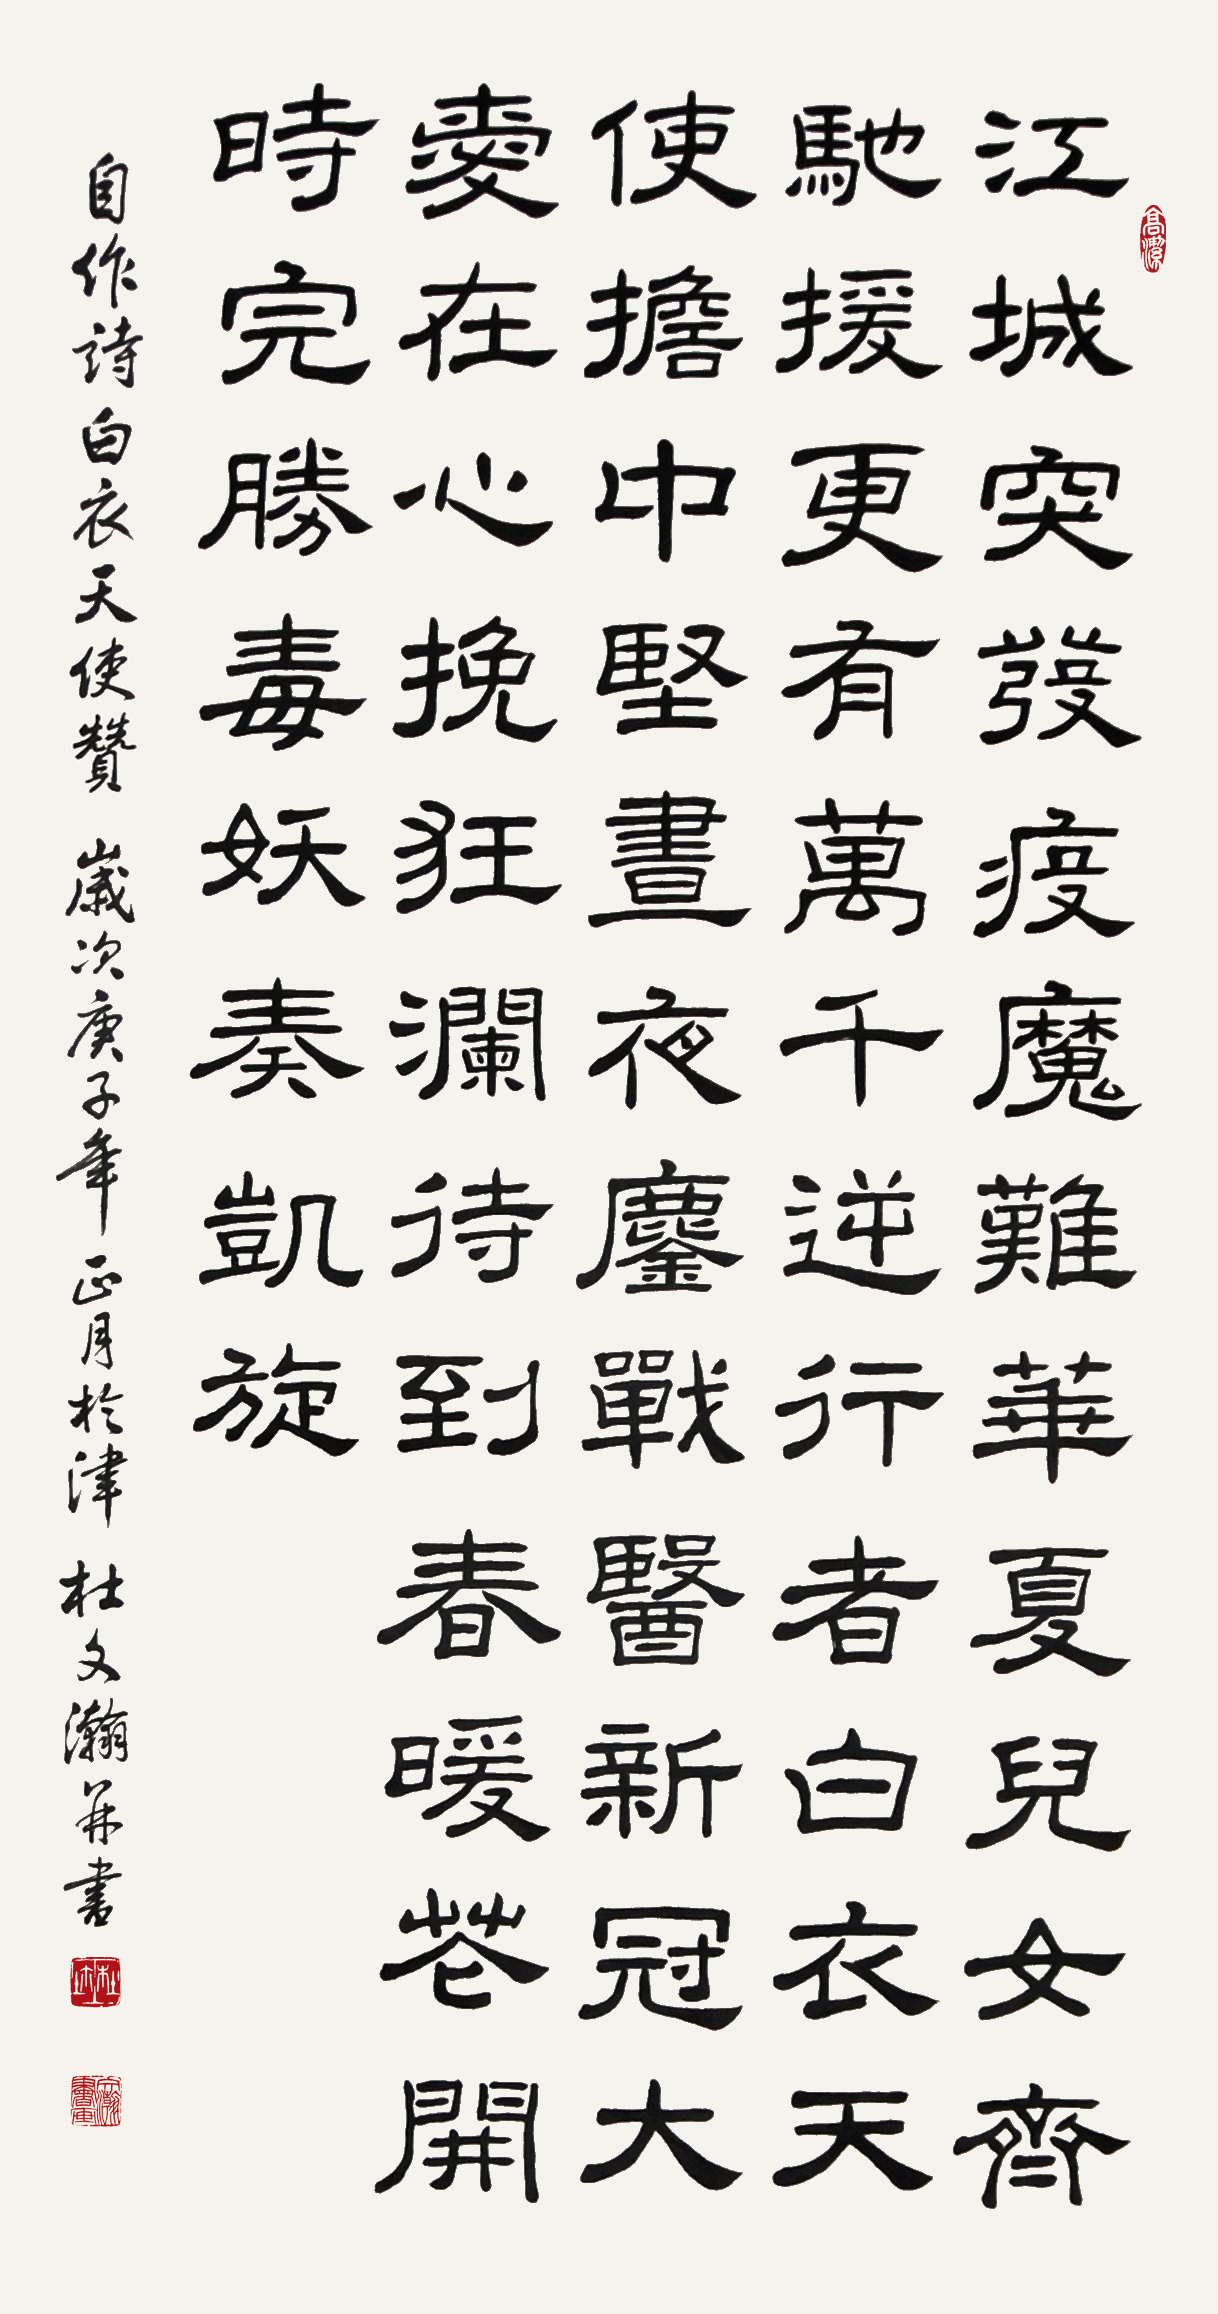 江城突發疫魔難華夏兒女齊
馳援更有萬千逆行者白衣天
使擔中堅晝夜鏖戰醫新冠大
愛在心挽狂瀾待到春暖花開
時完勝毒妖奏凱旋
自作詩白衣天使贊 歲次庚子年正月於津 杜文瀚并書